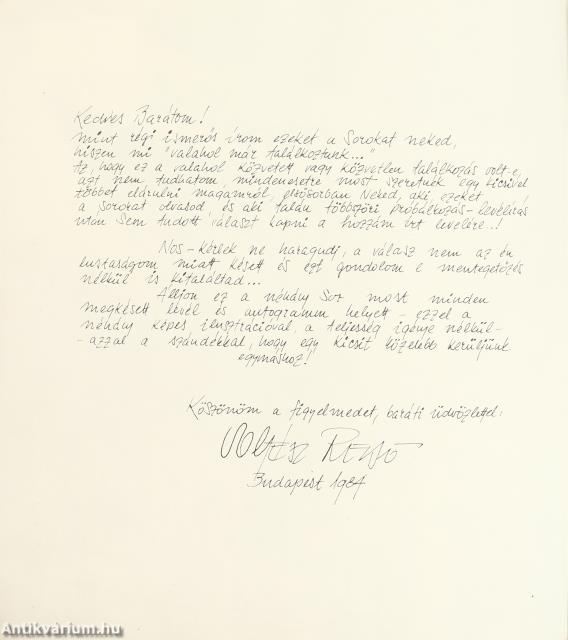 Kedves Barátom!
mint régi ismerős írom ezeket a sorokat neked,
hiszen mi "valahol már találkoztunk..."
Az, hogy ez a valahol közvetett vagy közvetlen találkozás volt-e,
azt nem tudhatom mindenesetre most szeretnék egy kicsivel
többet elárulni magamról, elsősorban Neked, aki ezeket
a sorokat olvasod és aki talán többszöri próbálkozás-levélírás
után sem tudott választ kapni a hozzám írt levelére..!
Nos - kérlek ne haragudj, a válasz nem az én
lustaságom miatt késett és ezt gondolom e mentegetőzés
nélkül is kitaláltad...
Álljon ez a néhány sor most minden
megkésett levél és autogramm helyett - ezzel a
néhány képes ilusztrációval, a teljesség igénye nélkül-
- azzal a szándékkal, hogy egy kicsit közelebb kerüljünk
egymáshoz!
Köszönöm a figyelmedet, baráti üdvözlettel:
Soltész Rezső
Budapest 1984
Antikvárium.hu